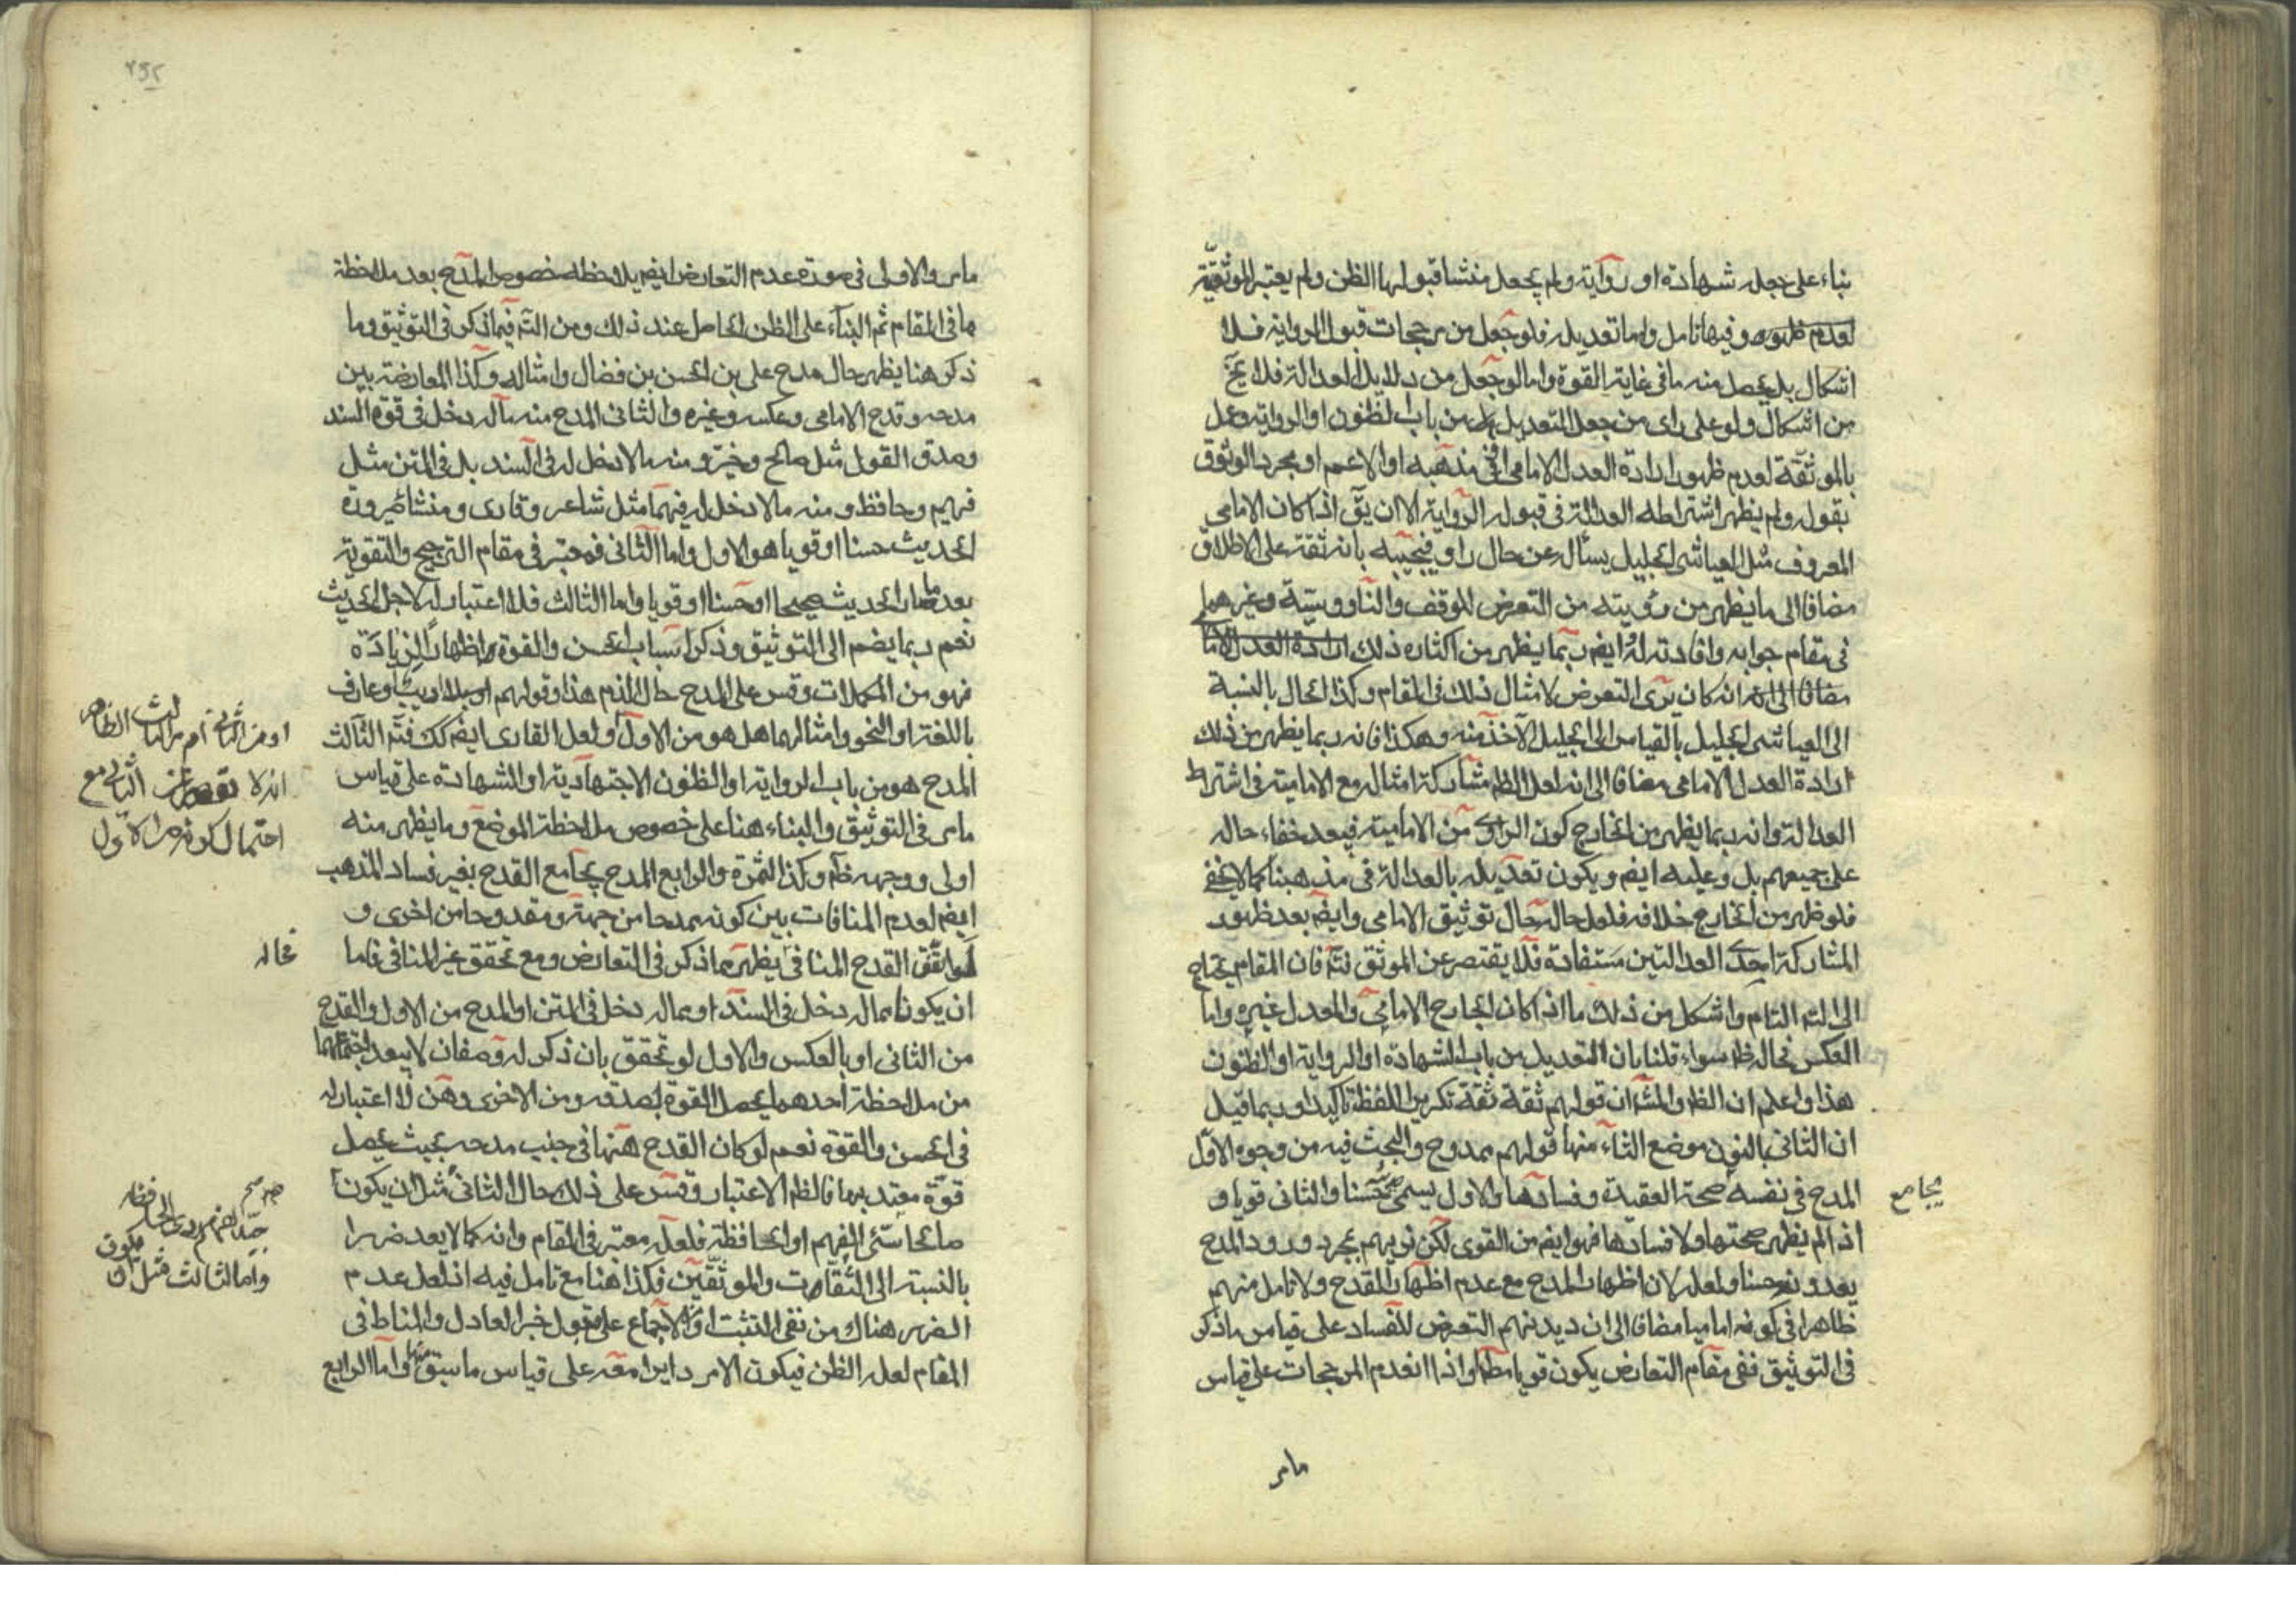 بناء على جعله شهادة او رواية ولم يجعل منشا قبولها الظن ولم يعتبر الموثقية
لعدم ظهوره وفيهما تامل واما تعديله فلو جعل من مرجحات قبول الرواية فلا
اشكال بل يحصل منه ما في غاية القوة واما لو جعل من دلايل العدالة فلا يخ
من اشكال ولو على راى من جعل التعديل من باب الظنون او الرواية وعمل
بالموثقة لعدم ظهور ارادة العدل الامامى او في مذهبه او الاعم او مجرد الوثوق
بقوله ولم يظهر اشتراطه العدالة في قبوله الرواية الا ان يق اذا كان الامامى
المعروف مثل العياشى الجليل يسأله عن حال راو فيجيبه بانه ثقة على الاطلاق
مضافا الى ما يظهر من رويته من التعرض للوقف والناووسية وغيرهما
في مقام جوابه وافادته له ايضم ربما يظهر من اكثاره ذلك ارادة العدل الاما
مضافا الى انه كان يرى التعرض لامثال ذلك في المقام وكذا الحال بالنسبة
الى العياشى الجليل بالقياس الى الجليل الآخذ منه وهكذا فانه ربما يظهر من ذلك
ارادة العدل الامامى مضافا الى انه لعل الظم مشاركة امثاله مع الامامية في اشتراط
العدالة وانه ربما يظهر من الخارج كون الراوى من الامامية فيبعد خفاء حاله
على جميعهم بل وعليه ايضم ويكون تعديله بالعدالة في مذهبنا كما لا يخفى
فلو ظهر من الخارج خلافه فلعل حاله حال توثيق الامامى وايضم بعد ظهور
المشاركة احدى العدالتين مستفادة فلا يقتصر عن الموثق فتم فان المقام يحتاج
الى التم التام واشكل من ذلك ما اذا كان الجارح الامامى والمعدل غيره واما
العكس فحاله ظم سواء قلنا بان التعديل من باب الشهادة او الرواية او الظنون
هذا واعلم ان الظم والمشه ان قولهم ثقة ثقة تكرير اللفظ تأكيدا وربما قيل
ان الثانى بالنون موضع الثاء منها قولهم ممدوح والبحث فيه من وجوه الاول
المدح في نفسه صحة العقيدة وفسادها والاول يسمى حسنا والثانى قويا و
يجامع
اذا لم يظهر صحتها ولا فسادها فهو ايضم من القوى لكن نريهم بمجرد ورود المدح
يعدونه حسنا ولعله لان اظهار المدح مع عدم اظهار القدح ولا تامل منهم
ظاهرا في كونه اماميا مضافا الى ان ديدنهم التعرض للفساد على قياس ما ذكر
في التوثيق ففى مقام التعارض يكون قويا مطلقا واذا انعدم المرجحات على قياس
مامر
٢٩٢
مامر والاولى في صورة عدم التعارض ايضم بلاحظه خصوص المدح بعد ملاحظة
ما في المقام ثم البناء على الظن الحاصل عند ذلك ومن التم فيما ذكر في التوثيق وما
ذكر هنا يظهر حال مدح على بن الحسن بن فضال وامثاله وكذا المعارضة بين
مدحه وقدح الامامى وعكسه وغيره والثانى المدح منه ماله دخل في قوة السند
وصدق القول مثل صالح وخير ومنه ما لا دخل له في السند بل في المتن مثل
فهيم وحافظ ومنه ما لا دخل له فيهما مثل شاعر وقارى ومنشا صيرورة
الحديث حسنا او قويا هو الاول واما الثانى فمعتبر في مقام الترجيح والتقوية
بعد ما صار الحديث صحيحا او حسنا او قويا واما الثالث فلا اعتبار له لاجل الحديث
نعم ربما يضم الى التوثيق وذكر اسباب الحسن والقوة اظهارا لزيادة
فهو من المكملات وقس على المدح حال الذم هذا وقولهم اديب او عارف
باللغة او النحو وامثالهما هل هو من الاول ولعل القارى ايضم كك فتم الثالث
او من الثانى ام من الثالث الظاهر
انه لا يقصر عن الثانى مع
احتمال كونه من الاول
المدح هو من باب الرواية او الظنون الاجتهادية او الشهادة على قياس
مامر في التوثيق والبناء هنا على خصوص ملاحظة الموضع وما يظهر منه
اولى ووجهه ظم وكذا الثمرة والرابع المدح يجامع القدح بغير فساد المذهب
ايضم لعدم المنافات بين كونه ممدحا من جهة ومقدوحا من اخرى و
لو اتفق القدح المنافى يظهر مما ذكر في التعارض ومع تحقق غير المنافى فاما
فحاله
ان يكونا مماله دخل في السند او مماله دخل في المتن او المدح من الاول والقدح
من الثانى او بالعكس والاول لو تحقق بان ذكر له وصفان لا يبعد اجتماعهما
من ملاحظة احدهما يحصل القوة لصدقه ومن الاخرى وهن لا اعتبار له
في الحسن والقوة نعم لو كان القدح هينا في جنب مدحه بحيث يحصل
قوة معتد بها فالظم الاعتبار وقس على ذلك حال الثانى مثل ان يكون
صالحا سئ الفهم او الحافظة فلعله معتبر في المقام وانه كما لا يعد ضررا
جيد الفهم ردى الحافظة
واما الثالث فمثل ان يكون
بالنسبة الى الثقات والموثقين فكذا هنا مع تامل فيه اذ لعل عدم
الضرر هناك من نفى التثبت او الاجماع على قبول خبر العادل والمناط في
المقام لعله الظن فيكون الامر دايرا معه على قياس ما سبق واما الرابع